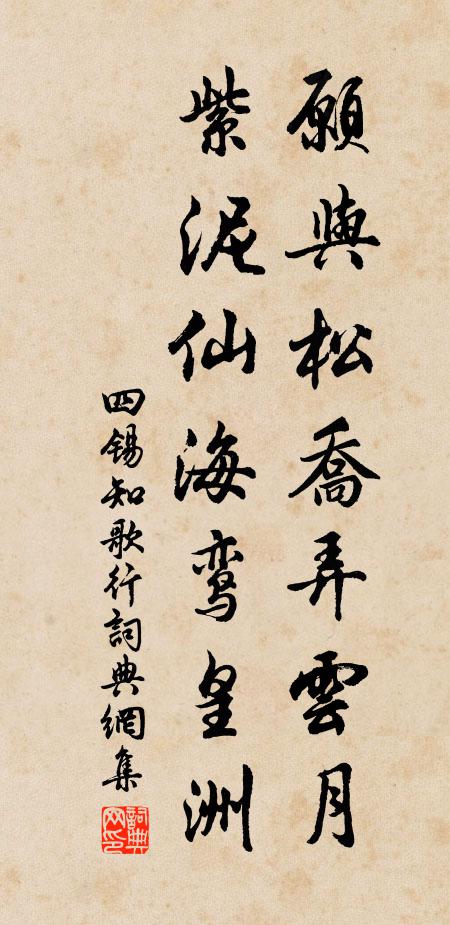 願與松喬弄雲月
紫泥仙海鸾皇洲
四锡知歌行詞典網集
詞典網印